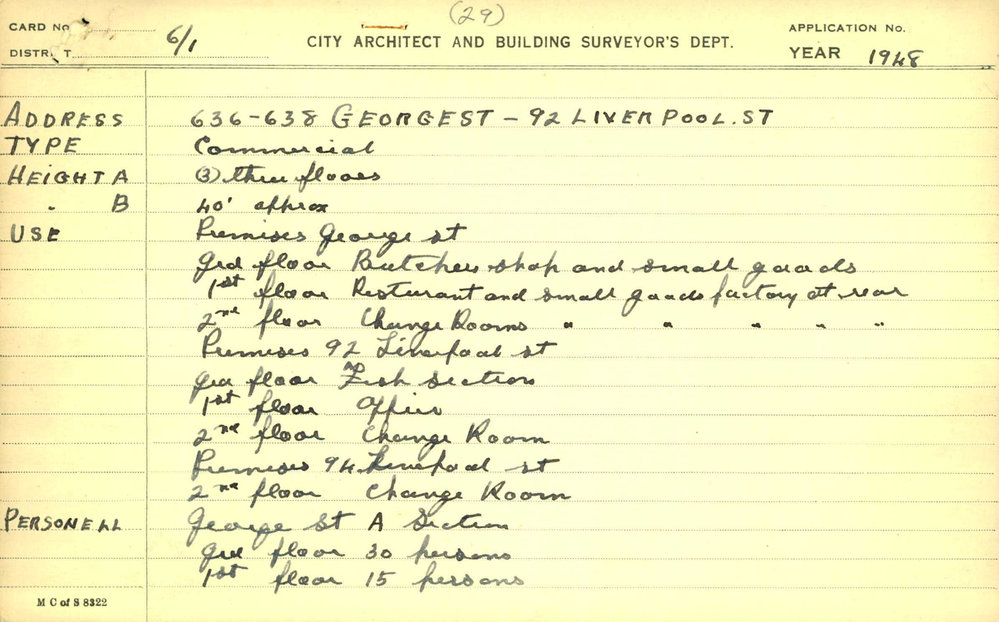 (29)
CARD No. 6/1 CITY ARCHITECT AND BUILDING SURVEYOR'S DEPT. APPLICATION No.
DISTRICT YEAR 1948
ADDRESS 636-638 GEORGE ST - 92 LIVERPOOL. ST
TYPE Commercial
HEIGHT A (3) three floors
" B 40' approx
USE Premises George st
grd floor Butchers shop and small goods
1st floor Resturant and small goods factory at rear
2nd floor Change Rooms " " " " "
Premises 92 Liverpool st
grd floor Fish Section
1st floor Office
2nd floor Change Room
Premises 94 Liverpool st
2nd floor Change Room
PERSONELL George St A Section
grd floor 30 persons
1st floor 15 persons
M C of S 8322